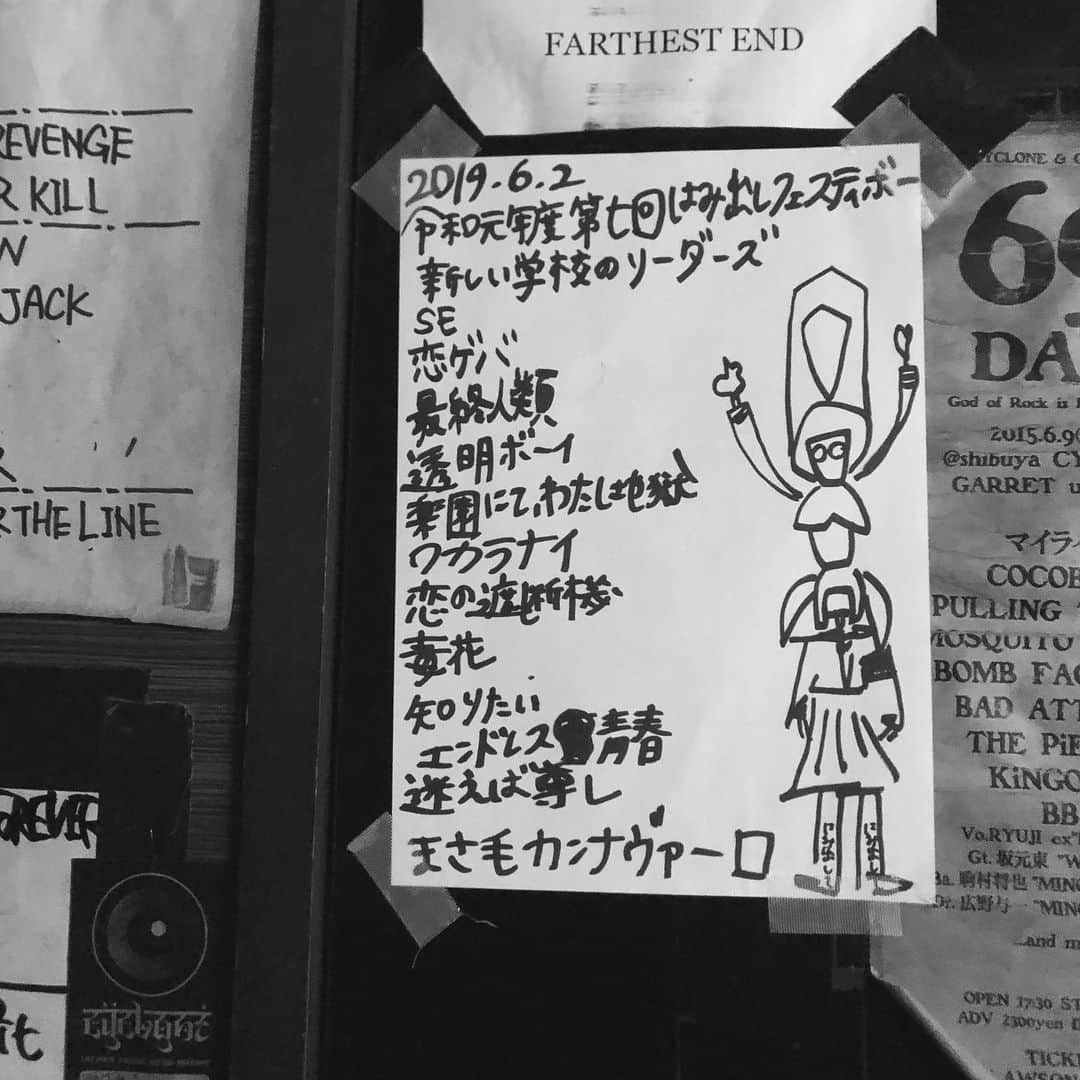 FARTHEST END
REVENGE
R KILL
N
JACK
R THE LINE
FOREVER
2019.6.2
令和元年度第七回はみ出しフェスティボー
新しい学校のリーダーズ
SE
恋ゲバ
最終人類
透明ボーイ
楽園にて、わたし地獄
ワカラナイ
恋の遮断機
毒花
知りたい
エンドレス青春
迷えば尊し
まさ毛カンナヴァーロ
CYCLONE & G
69
DA
God of Rock is
2015.6.9
@shibuya CY
GARRET u
マイラ
COCOB
PULLING
MOSQUITO
BOMB FAC
BAD ATT
THE PiE
KiNGO
BB
Vo.RYUJI ex"
Gt. 坂元東 "W
Ba. 駒村将也 "MING
Dr. 広野与一 "MIN
...and m
OPEN 17:30 ST
ADV 2300yen D
TICK
LAWSON